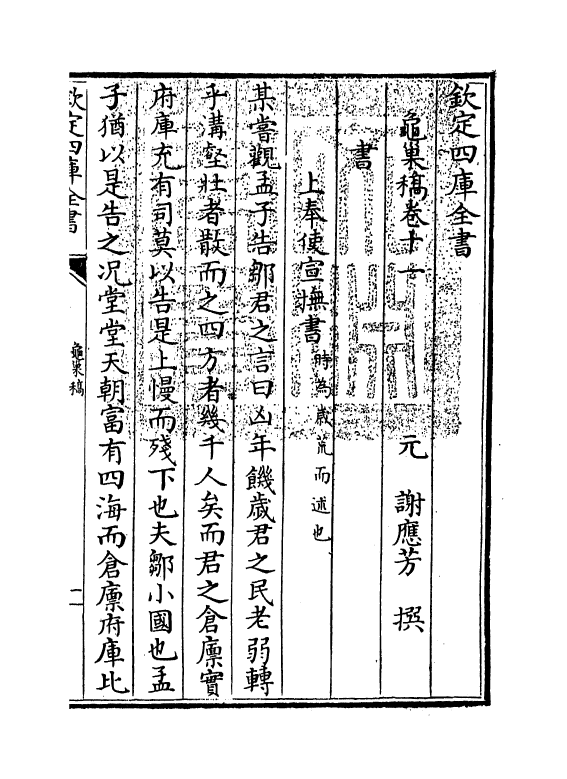 欽定四庫全書
龜巢稿卷十一　元　謝應芳　撰
書
上奉使宣撫書時為歲荒而述也
某嘗觀孟子告鄒君之言曰凶年饑歲君之民老弱轉
乎溝壑壯者散而之四方者幾千人矣而君之倉廪實
府庫充有司莫以告是上慢而殘下也夫鄒小國也孟
子猶以是告之况堂堂天朝富有四海而倉廪府庫比
欽定四庫全書
龜巢稿